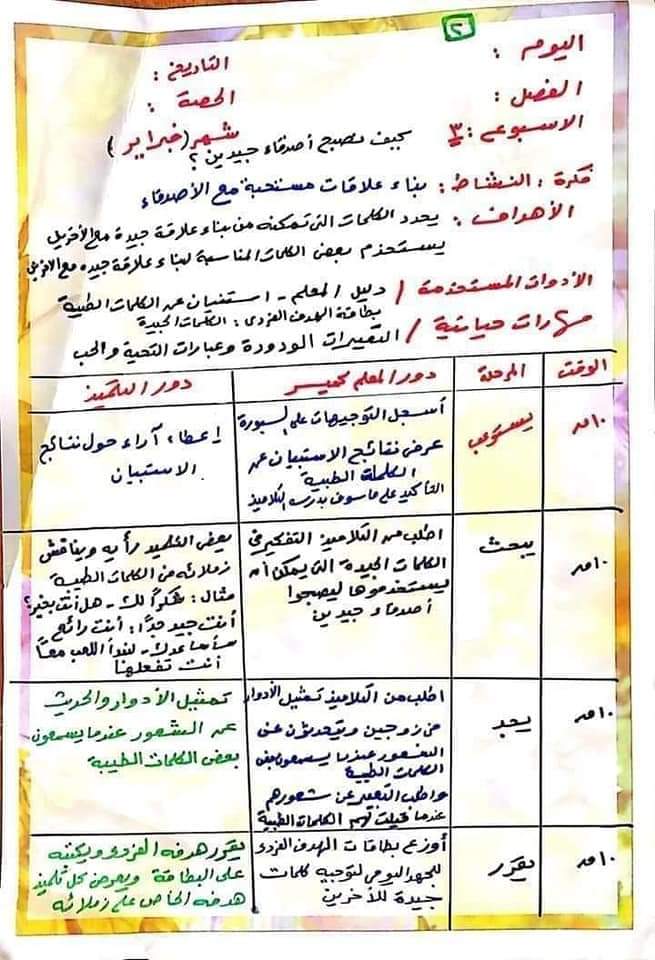 ٢
اليوم :
التاريخ :
الفصل :
الحصة :
الاسبوع : ٣
شهر (فبراير)
كيف نصبح أصدقاء جيدين ؟
فكرة النشاط : بناء علاقات مستحبة مع الأصدقاء
الأهداف : يحدد الكلمات التى تمكنه من بناء علاقة جيدة مع الآخرين
يستخدم بعض الكلمات المناسبة لبناء علاقة جيده مع الآخرين
الأدوات المستخدمة / دليل المعلم - استبيان عن الكلمات الطيبة
بطاقة الهدف الفردى : الكلمات الجيدة
مهارات حياتية / التعبيرات الودودة وعبارات التحية والحب
الوقت المرحلة دور المعلم كميسر دور التلميذ
١٠ د يستوعب
أسجل التوجيهات على السبورة
عرض نتائج الاستبيان عن
الكلمة الطيبة
التأكيد على ما سوف يدرسه التلاميذ
إعطاء آراء حول نتائج
الاستبيان
١٠ د يبحث
اطلب من التلاميذ التفكير فى
الكلمات الجيدة التى يمكن أن
يستخدموها ليصبحوا
أصدقاء جيدين
يعرض التلميذ رأيه ويناقش
زملائه فى الكلمات الطيبة
مثال : شكراً لك - هل أنت بخير؟
أنت جيد جداً : أنت رائع
سأساعدك - لنبدأ اللعب معاً
أنت تفعلها
١٠ د يجد
اطلب من التلاميذ تمثيل الأدوار
فى زوجين ويتحدثون عن
الشعور عندما يسمعون بعض
الكلمات الطيبة
واطلب التعبير عن شعورهم
عندما قيلت لهم الكلمات الطيبة
تمثيل الأدوار والحديث
عن الشعور عندما يسمعون
بعض الكلمات الطيبة
١٠ د يقرر
أوزع بطاقات الهدف الفردى
للجهد اليومى لتوجيه كلمات
جيدة للآخرين
يقرر هدفه الفردى ويكتبه
على البطاقة ويعرض كل تلميذ
هدفه الخاص على زملائه